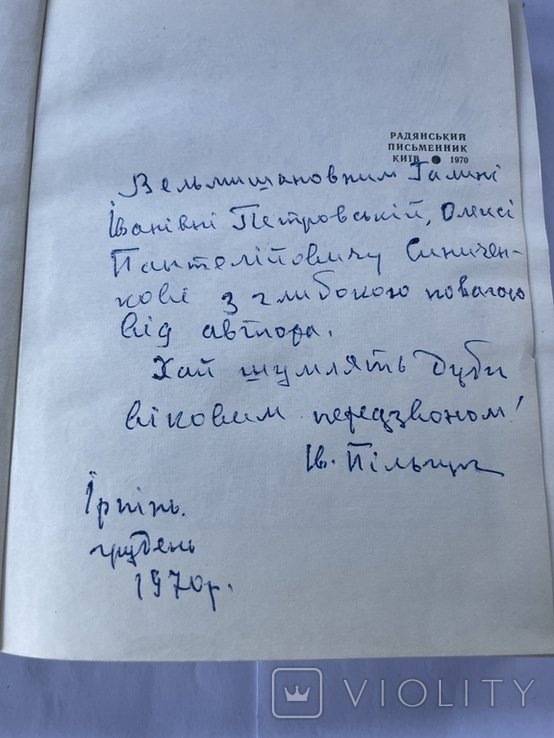 РАДЯНСЬКИЙ
ПИСЬМЕННИК
КИЇВ ● 1970
Вельмишановним Галині
Іванівні Петровській, Олексі
Пантелійовичу Синичен-
кові з глибокою повагою
від автора.
Хай шумлять дуби
віковим передзвоном!
Ів. Пільгук
Їрпінь.
грудень
1970р.
VIOLITY